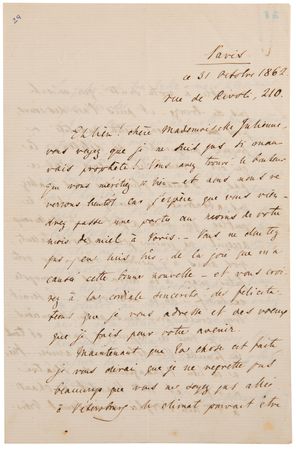 Paris
ce 31 Octobre 1862
rue de Rivoli, 210.
Eh bien! chère Mademoiselle Julienne,
vous voyez que je ne suis pas si mauvais
prophète! Vous avez trouvé le bonheur
que vous méritez si bien - et nous nous re-
verrons bientôt. Car j'espère que vous vien-
drez passer une partie au moins de votre
mois de miel à Paris. - Vous ne doutez
pas, j'en suis sûr, de la joie que m'a
causée cette bonne nouvelle - et vous croi-
rez à la cordiale sincérité des félicita-
tions que je vous adresse et des voeux
que je fais pour votre avenir.
Maintenant que la chose est faite
je vous dirai que je ne regrette pas
beaucoup que vous ne soyez pas allée
à Pétersbourg - le climat pouvait être